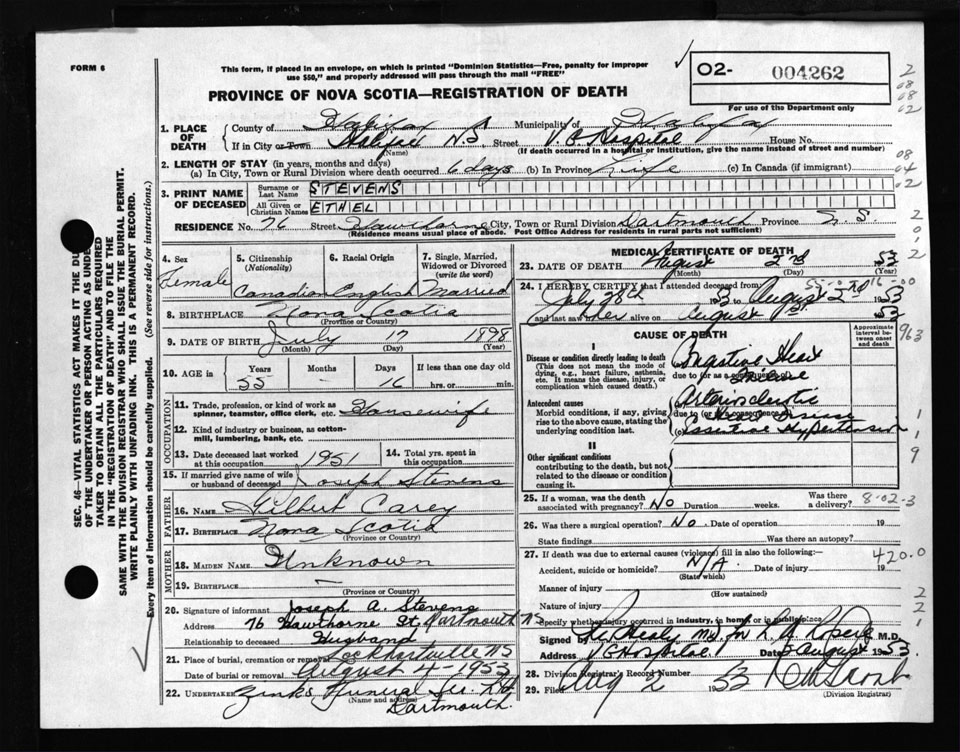 FORM 6
This form, if placed in an envelope, on which is printed "Dominion Statistics—Free, penalty for improper
use $50," and properly addressed will pass through the mail "FREE"
02- 004262
For use of the Department only
PROVINCE OF NOVA SCOTIA—REGISTRATION OF DEATH
SEC. 46—VITAL STATISTICS ACT MAKES IT THE DU
OF THE UNDERTAKER OR PERSON ACTING AS UNDE
TAKER TO OBTAIN ALL THE PARTICULARS REQUIRED
IN THE "REGISTRATION OF DEATH" AND TO FILE THE
SAME WITH THE DIVISION REGISTRAR WHO SHALL ISSUE THE BURIAL PERMIT.
WRITE PLAINLY WITH UNFADING INK. THIS IS A PERMANENT RECORD.
Every item of information should be carefully supplied. (See reverse side for instructions.)
1. PLACE OF DEATH County of Halifax Municipality of Halifax
If in City or Town Halifax N.S. Street V.G. Hospital House No.
(Name) (If death occurred in a hospital or institution, give the name instead of street and number)
2. LENGTH OF STAY (in years, months and days)
(a) In City, Town or Rural Division where death occurred 6 days (b) In Province Life (c) In Canada (if immigrant)
3. PRINT NAME OF DECEASED Surname or Last Name STEVENS
All Given or Christian Names ETHEL
RESIDENCE No. 76 Street Hawthorne City, Town or Rural Division Dartmouth Province N.S.
(Residence means usual place of abode. Post Office Address for residents in rural parts not sufficient)
4. Sex Female
5. Citizenship (Nationality) Canadian
6. Racial Origin English
7. Single, Married, Widowed or Divorced (write the word) Married
8. BIRTHPLACE Nova Scotia
(Province or Country)
9. DATE OF BIRTH July 17 1898
(Month) (Day) (Year)
10. AGE in Years 55 Months - Days 16 If less than one day old hrs. or min.
OCCUPATION
11. Trade, profession, or kind of work as spinner, teamster, office clerk, etc. Housewife
12. Kind of industry or business, as cotton-mill, lumbering, bank, etc.
13. Date deceased last worked at this occupation 1951
14. Total yrs. spent in this occupation
15. If married give name of wife or husband of deceased Joseph Stevens
FATHER
16. NAME Gilbert Carey
17. BIRTHPLACE Nova Scotia
(Province or Country)
MOTHER
18. MAIDEN NAME Unknown
19. BIRTHPLACE —
(Province or Country)
20. Signature of informant Joseph A. Stevens
Address 76 Hawthorne St. Dartmouth N.S.
Relationship to deceased Husband
21. Place of burial, cremation or removal Lockhartville NS
Date of burial or removal August 4-1953
22. UNDERTAKER Zinks Funeral Ser. Ltd
(Name and address)
Dartmouth.
MEDICAL CERTIFICATE OF DEATH
23. DATE OF DEATH August 2nd 53
(Month) (Day) (Year)
24. I HEREBY CERTIFY that I attended deceased from
July 28th 53 to August 2nd 1953
and last saw her alive on August 1st 1953
CAUSE OF DEATH
Approximate interval between onset and death
I
Disease or condition directly leading to death
(This does not mean the mode of dying, e.g., heart failure, asthenia, etc. It means the disease, injury, or complication which caused death.)
Congestive Heart
due to (or as a consequence of)
Failure
Antecedent causes
Morbid conditions, if any, giving rise to the above cause, stating the underlying condition last.
Arteriosclerotic
due to (or as a consequence of)
Heart Disease
(c) Essential Hypertension
II
Other significant conditions
contributing to the death, but not related to the disease or condition causing it.
25. If a woman, was the death associated with pregnancy? No Duration weeks. Was there a delivery? 8-02-3
26. Was there a surgical operation? No. Date of operation 19
State findings Was there an autopsy?
27. If death was due to external causes (violence) fill in also the following: 420.0
Accident, suicide or homicide? N/A Date of injury 19
(State which)
Manner of injury
(How sustained)
Nature of injury
Specify whether injury occurred in industry, in home, or in public place
Signed by Healy M.D. for M.D.
Address V G Hospital Date August 1953
28. Division Registrar's Record Number
29. Filed Aug 2 1953
(Division Registrar)